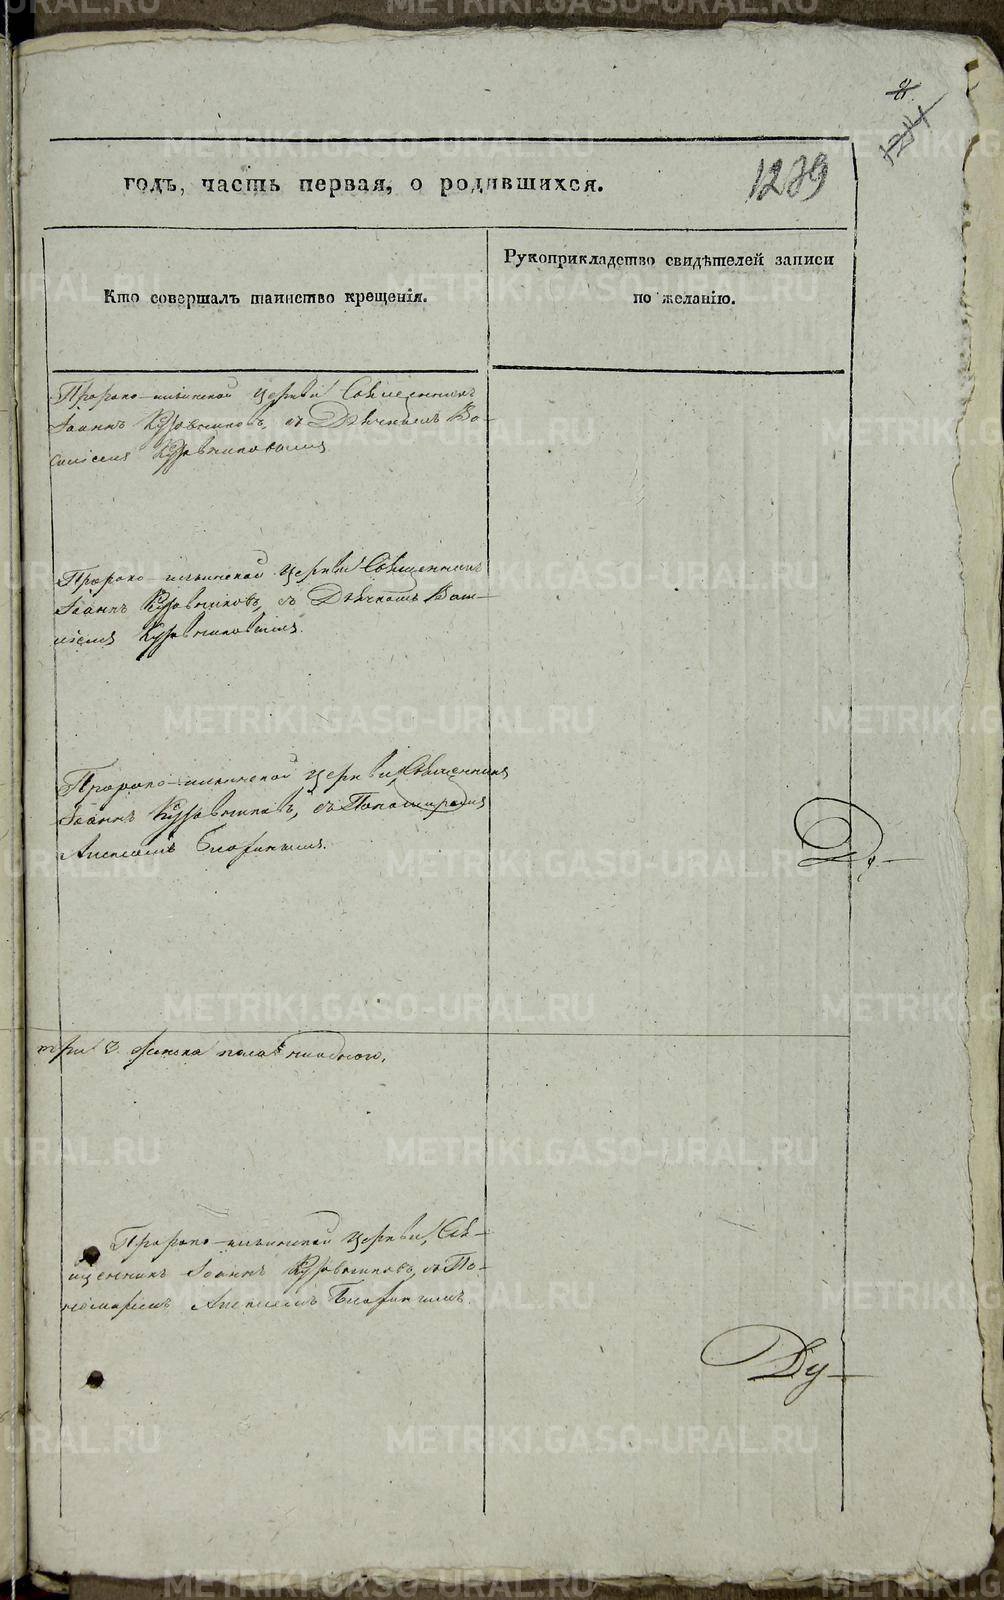 1239
годъ, часть первая, о родившихся.
Кто совершалъ таинство крещенія.
Рукоприкладство свидѣтелей записи
по желанію.
Пророко-ильинской церкви Священникъ
Іоаннъ Кузовниковъ, съ Дьячкомъ Ва-
силіемъ Кузовниковымъ
Пророко-ильинской церкви Священникъ
Іоаннъ Кузовниковъ, съ Дьячкомъ Васи-
ліемъ Кузовниковымъ.
Пророко-ильинской церкви Священникъ
Іоаннъ Кузовниковъ, съ Пономаремъ
Алексѣемъ
три женска пола ниодного.
Пророко-ильинской церкви, Свя-
щенникъ Іоаннъ Кузовниковъ, съ По-
номаремъ Алексѣемъ
METRIKI.GASO-URAL.RU